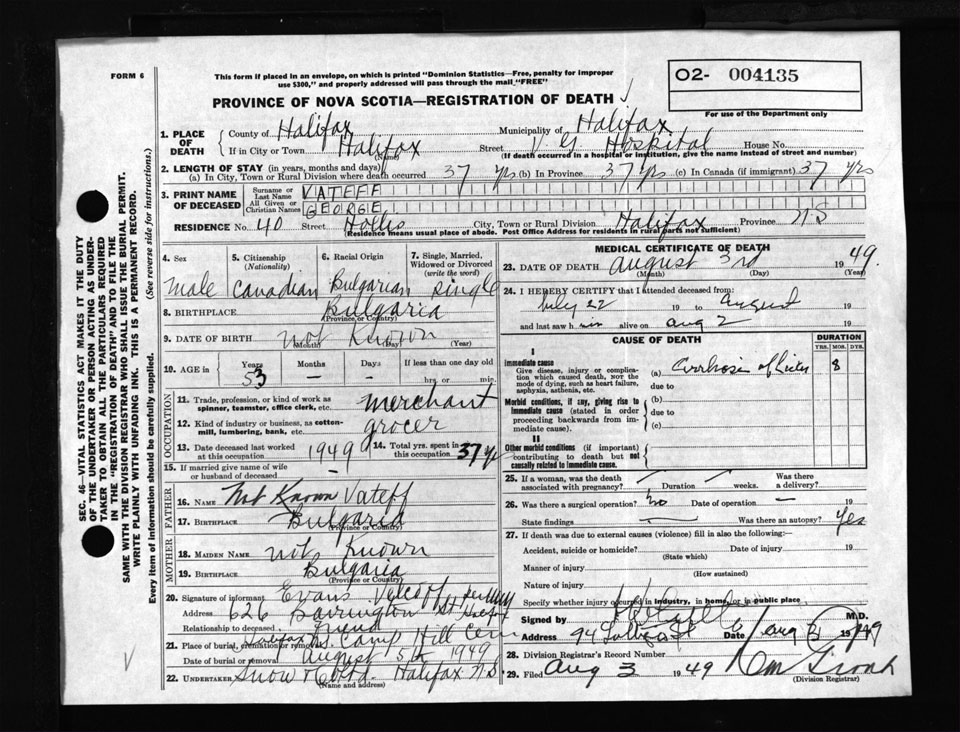 FORM 6
This form if placed in an envelope, on which is printed "Dominion Statistics—Free, penalty for improper
use $300," and properly addressed will pass through the mail "FREE"
O2- 004135
For use of the Department only
PROVINCE OF NOVA SCOTIA—REGISTRATION OF DEATH
1. PLACE OF DEATH County of Halifax Municipality of Halifax
If in City or Town Halifax (Name) Street V G Hospital House No.
(If death occurred in a hospital or institution, give the name instead of street and number)
2. LENGTH OF STAY (in years, months and days)
(a) In City, Town or Rural Division where death occurred 37 yrs (b) In Province 37 yrs (c) In Canada (if immigrant) 37 yrs
3. PRINT NAME OF DECEASED Surname or Last Name VATEFF
All Given or Christian Names GEORGE
RESIDENCE No. 40 Street Hollis City, Town or Rural Division Halifax Province N.S
(Residence means usual place of abode. Post Office Address for residents in rural parts not sufficient)
4. Sex 5. Citizenship (Nationality) 6. Racial Origin 7. Single, Married, Widowed or Divorced (write the word)
male Canadian Bulgarian single
8. BIRTHPLACE Bulgaria
(Province or Country)
9. DATE OF BIRTH not Known
(Month) (Day) (Year)
10. AGE in Years Months Days If less than one day old
53 – – hrs. or min.
OCCUPATION
11. Trade, profession, or kind of work as spinner, teamster, office clerk, etc. merchant
12. Kind of industry or business, as cotton-mill, lumbering, bank, etc. grocer
13. Date deceased last worked at this occupation 1949 14. Total yrs. spent in this occupation 37 yrs
15. If married give name of wife or husband of deceased –
FATHER
16. NAME Not Known Vateff
17. BIRTHPLACE Bulgaria
(Province or Country)
MOTHER
18. MAIDEN NAME not Known
19. BIRTHPLACE Bulgaria
(Province or Country)
20. Signature of informant Evans
Address 626 Barrington St
Relationship to deceased friend
21. Place of burial, cremation or removal Halifax Camp Hill Cem
Date of burial or removal August 5th 1949
22. UNDERTAKER Snow & Co Ltd. Halifax N.S
(Name and address)
MEDICAL CERTIFICATE OF DEATH
23. DATE OF DEATH August 3rd 1949.
(Month) (Day) (Year)
24. I HEREBY CERTIFY that I attended deceased from:
July 22 19 to August 19
and last saw him alive on Aug 2 19
CAUSE OF DEATH DURATION
YRS. MOS. DYS.
I
Immediate cause
Give disease, injury or complication which caused death, not the mode of dying, such as heart failure, asphyxia, asthenia, etc.
(a) Cirrhosis of Liver 8
due to
Morbid conditions, if any, giving rise to immediate cause (stated in order proceeding backwards from immediate cause).
(b)
due to
(c)
II
Other morbid conditions (if important) contributing to death but not causally related to immediate cause.
25. If a woman, was the death associated with pregnancy? Duration weeks. Was there a delivery?
26. Was there a surgical operation? No Date of operation – 19
State findings — Was there an autopsy? Yes
27. If death was due to external causes (violence) fill in also the following:
Accident, suicide or homicide? Date of injury 19
(State which)
Manner of injury
(How sustained)
Nature of injury
Specify whether injury occurred in industry, in home, or in public place
Signed by M.D.
Address 94 St Date Aug 3 1949
28. Division Registrar's Record Number
29. Filed Aug 3 1949
(Division Registrar)
SEC. 46—VITAL STATISTICS ACT MAKES IT THE DUTY
OF THE UNDERTAKER OR PERSON ACTING AS UNDERTAKER
TO OBTAIN ALL THE PARTICULARS REQUIRED
IN THE "REGISTRATION OF DEATH" AND TO FILE THE
SAME WITH THE DIVISION REGISTRAR WHO SHALL ISSUE THE BURIAL PERMIT.
WRITE PLAINLY WITH UNFADING INK. THIS IS A PERMANENT RECORD.
Every item of information should be carefully supplied. (See reverse side for instructions.)